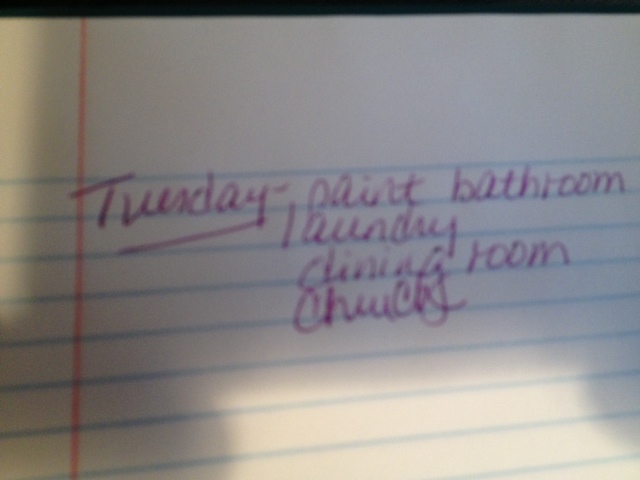 Tuesday - paint bathroom
laundry
dining room